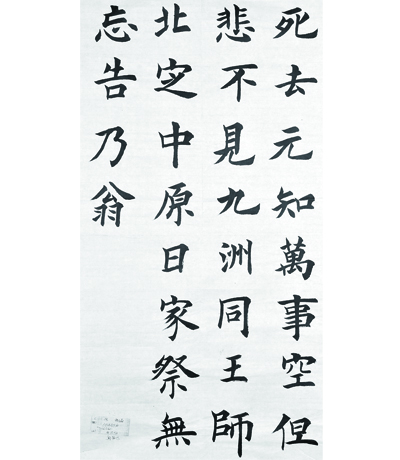 死去元知萬事空但
悲不見九洲同王師
北定中原日家祭無
忘告乃翁